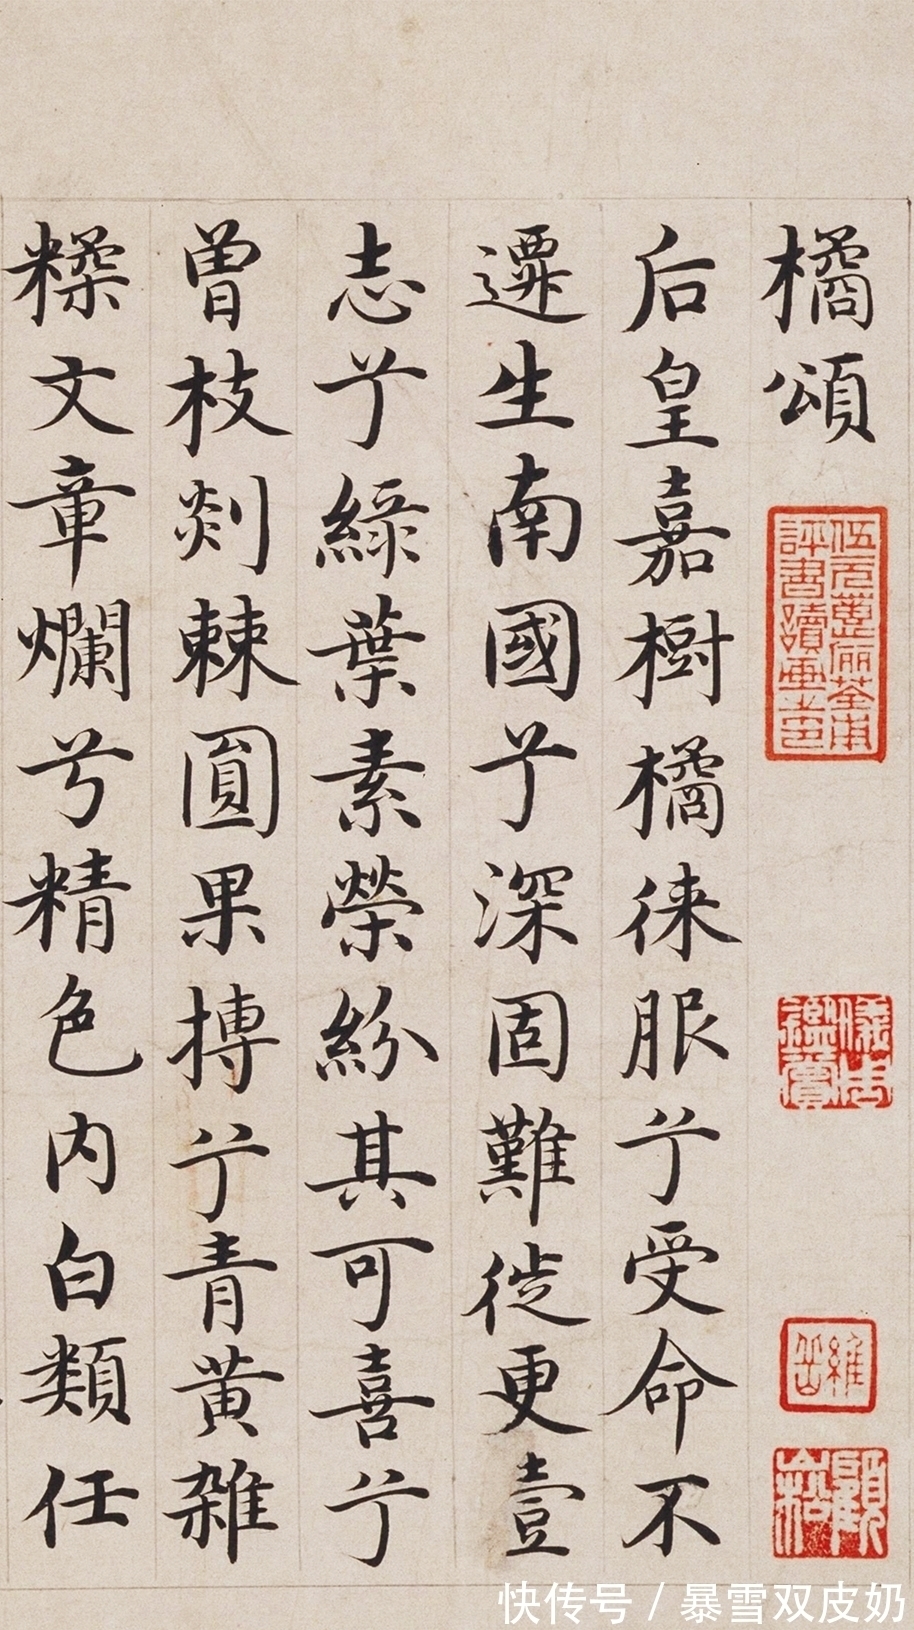 橘頌
后皇嘉樹橘徕服兮受命不
遷生南國兮深固難徙更壹
志兮緑葉素榮紛其可喜兮
曾枝剡棘圓果摶兮青黄雜
糅文章爛兮精色内白類任
儀周鑑賞
維岳
顧崧
快传号 / 暴雪双皮奶